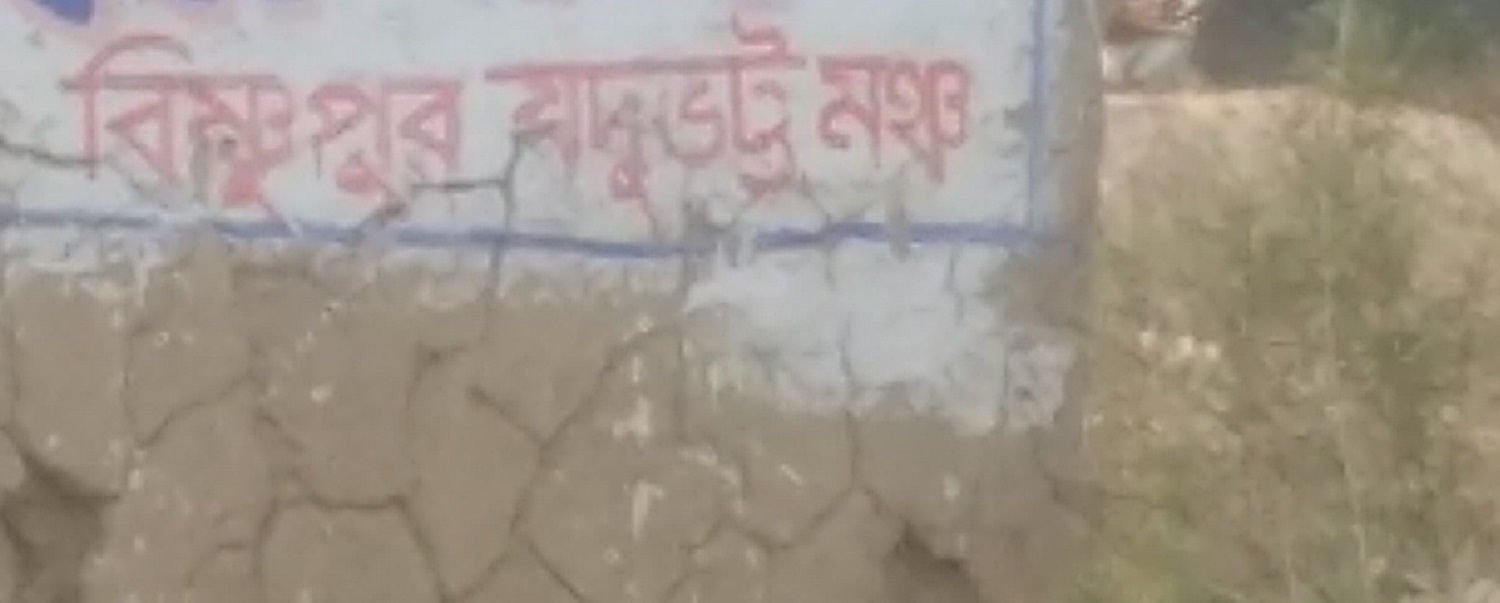 বিষ্ণুপুর যদুভট্ট মঞ্চ